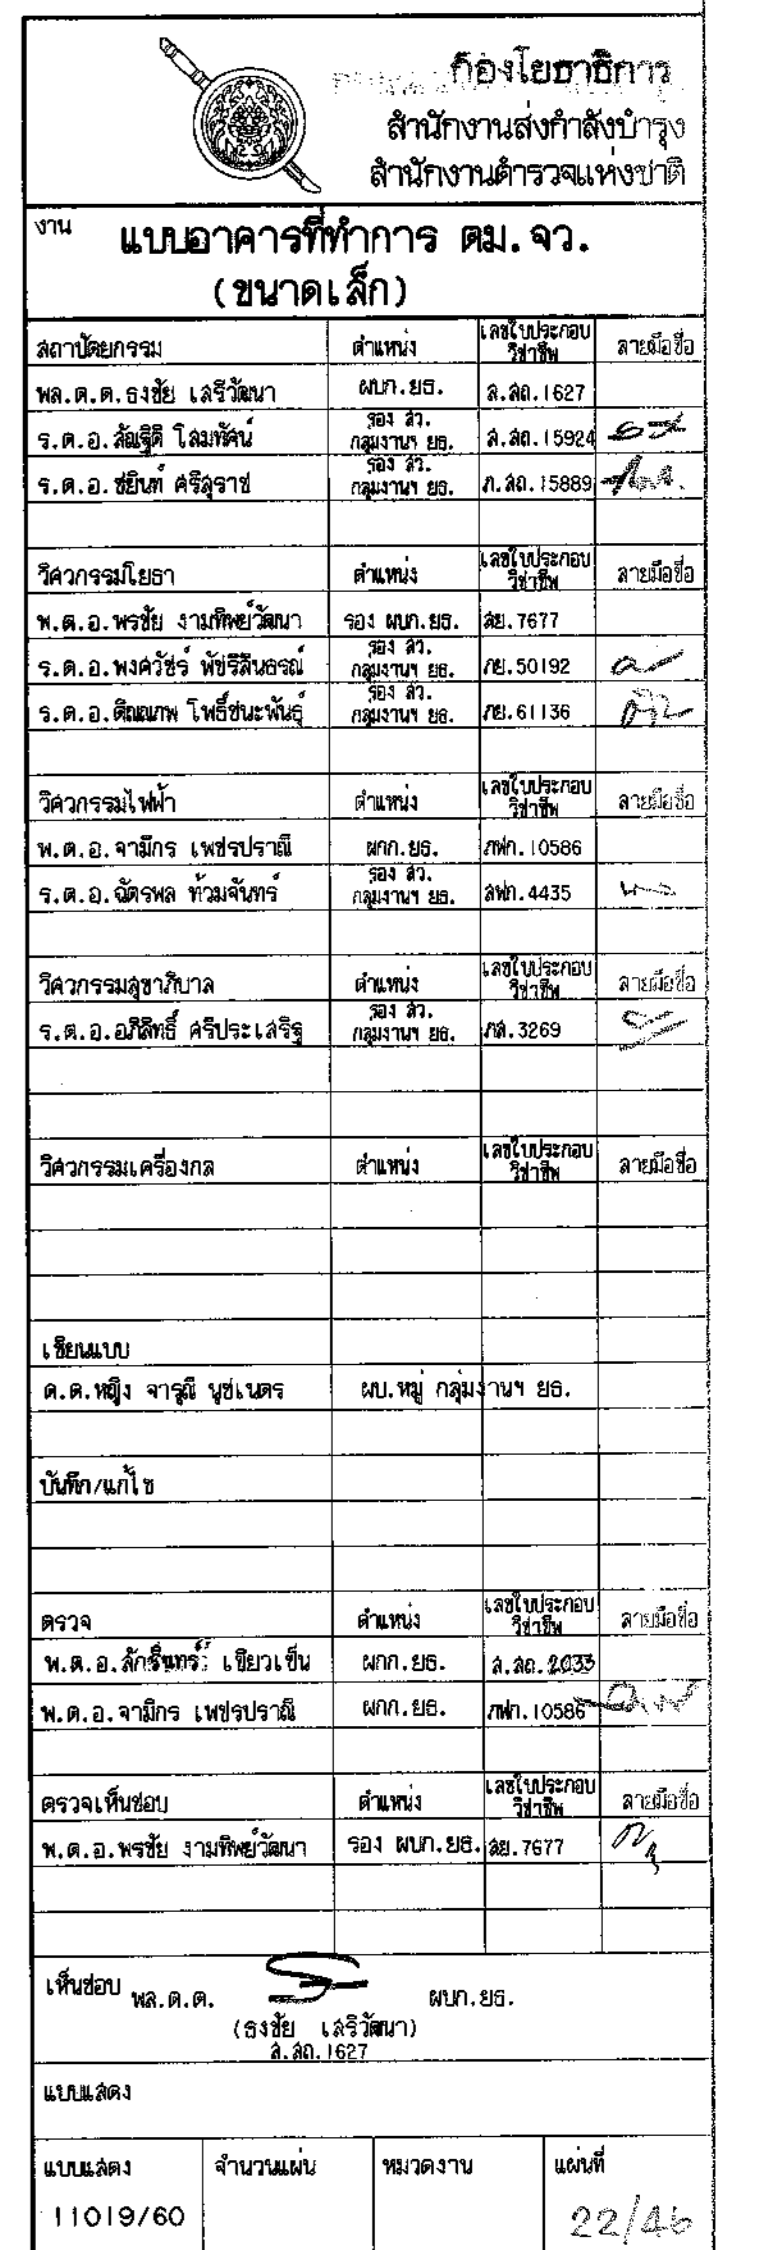 กองโยธาธิการ
สำนักงานส่งกำลังบำรุง
สำนักงานตำรวจแห่งชาติ
งาน แบบอาคารที่ทำการ ตม.จว.
(ขนาดเล็ก)
สถาปัตยกรรม ตำแหน่ง เลขใบประกอบวิชาชีพ ลายมือชื่อ
พล.ต.ต.ธงชัย เสรีวัฒนา ผบก.ยธ. ส.สถ.1627
ร.ต.อ.สัณฐิติ โสมทัศน์ รอง สว. กลุ่มงานฯ ยธ. ส.สถ.15924
ร.ต.อ.ชยินท์ ศรีสุราช รอง สว. กลุ่มงานฯ ยธ. ภ.สถ.15889
วิศวกรรมโยธา ตำแหน่ง เลขใบประกอบวิชาชีพ ลายมือชื่อ
พ.ต.อ.พรชัย งามทิพย์วัฒนา รอง ผบก.ยธ. สย.7677
ร.ต.อ.พงศวัชร์ พัชรสินธรณ์ รอง สว. กลุ่มงานฯ ยธ. ภย.50192
ร.ต.อ.ติณณภพ โพธิ์ชนะพันธุ์ รอง สว. กลุ่มงานฯ ยธ. ภย.61136
วิศวกรรมไฟฟ้า ตำแหน่ง เลขใบประกอบวิชาชีพ ลายมือชื่อ
พ.ต.อ.จามิกร เพชรปราณี ผกก.ยธ. ภฟก.10586
ร.ต.อ.ฉัตรพล ท้วมจันทร์ รอง สว. กลุ่มงานฯ ยธ. สฟก.4435
วิศวกรรมสุขาภิบาล ตำแหน่ง เลขใบประกอบวิชาชีพ ลายมือชื่อ
ร.ต.อ.อภิสิทธิ์ ศรีประเสริฐ รอง สว. กลุ่มงานฯ ยธ. ภส.3269
วิศวกรรมเครื่องกล ตำแหน่ง เลขใบประกอบวิชาชีพ ลายมือชื่อ
เขียนแบบ
ด.ต.หญิง จารุณี นุชเนตร ผบ.หมู่ กลุ่มงานฯ ยธ.
บันทึก/แก้ไข
ตรวจ ตำแหน่ง เลขใบประกอบวิชาชีพ ลายมือชื่อ
พ.ต.อ. เขียวเข็น ผกก.ยธ. ส.สถ.2033
พ.ต.อ.จามิกร เพชรปราณี ผกก.ยธ. ภฟก.10586
ตรวจเห็นชอบ ตำแหน่ง เลขใบประกอบวิชาชีพ ลายมือชื่อ
พ.ต.อ.พรชัย งามทิพย์วัฒนา รอง ผบก.ยธ. สย.7677
เห็นชอบ พล.ต.ต. ผบก.ยธ.
(ธงชัย เสรีวัฒนา)
ส.สถ.1627
แบบแสดง
แบบแสดง จำนวนแผ่น หมวดงาน แผ่นที่
11019/60 22/46